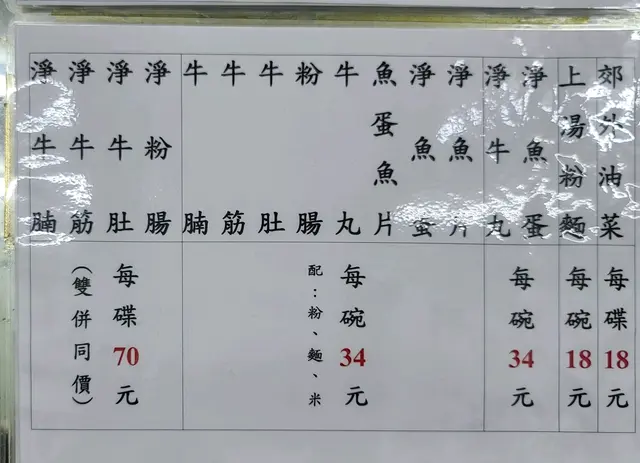 郊外油菜
每碟18元
上湯粉麵
每碗18元
淨魚蛋
淨牛丸
每碗34元
淨魚片
淨魚蛋
魚蛋魚片
牛丸
粉腸
牛肚
牛筋
牛腩
每碗34元
配：粉、麵、米
淨粉腸
淨牛肚
淨牛筋
淨牛腩
每碟70元
（雙併同價）